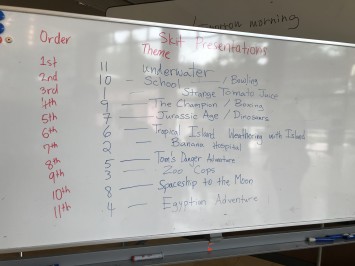 morning
Order Skit Presentations
Theme
1st 11 underwater
2nd 10 - School / Bowling
3rd 1 Strange Tomato Juice
4th 9 The Champion / Boxing
5th 7 Jurassic Age / Dinosaurs
6th 6 Tropical Island Weathering with Island
7th 2 Banana Hospital
8th 5 Tom's Danger Adventure
9th 3 Zoo Cops
10th 8 Spaceship to the Moon
11th 4 Egyptian Adventure